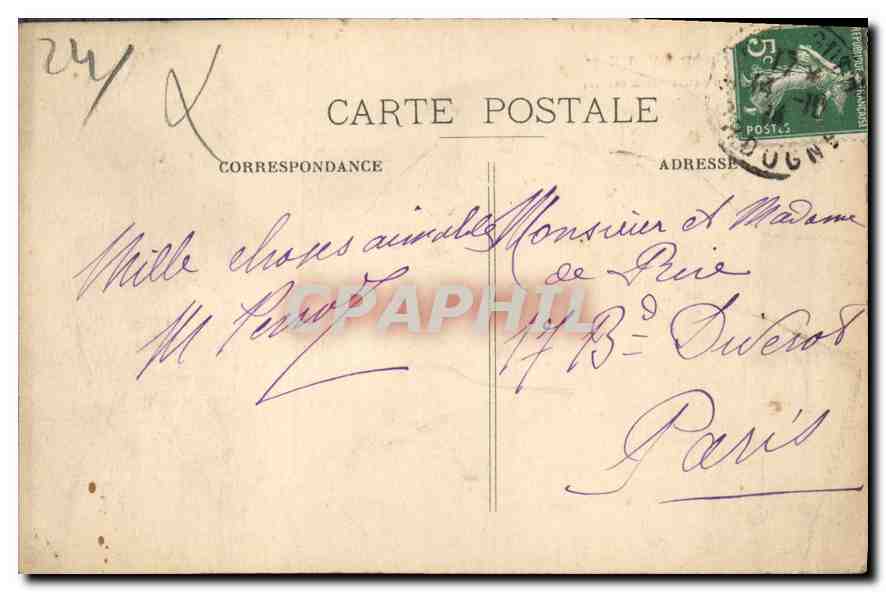 24
CARTE POSTALE
CORRESPONDANCE
ADRESSE
RÉPUBLIQUE FRANÇAISE
5c
POSTES
17
-10
14
DOGNE
Mille choses aimables
M Perrot
Monsieur et Madame
de
17 Bd Diderot
Paris
CPAPHIL